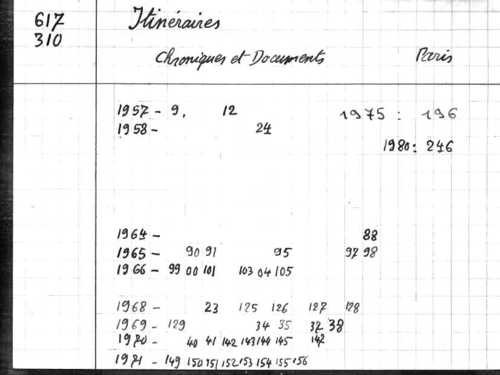 617 Itinéraires
310
Chroniques et Documents Paris
1957 - 9, 12 1975 : 196
1958 - 24
1980: 246
1964 - 88
1965 - 90 91 95 97 98
1966 - 99 00 101 103 04 105
1968 - 23 125 126 127 128
1969 - 129 34 35 37 38
1970 - 40 41 142 143 144 145 147
1971 - 149 150 151 152 153 154 155 156